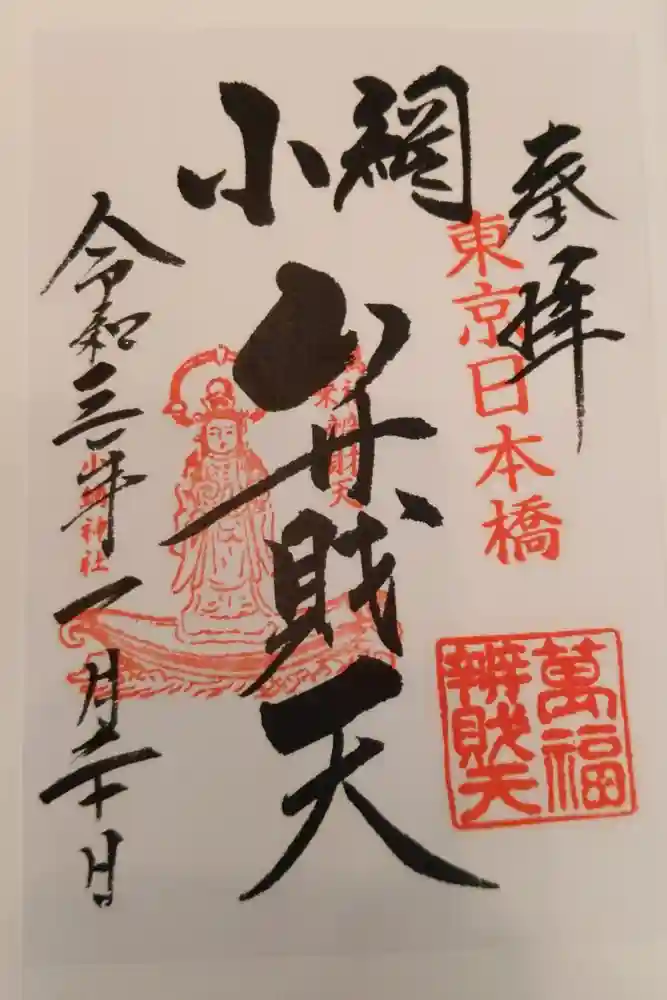 奉拝
東京日本橋
萬福
辨財天
小網
弁財天
萬福
辨財天
小網神社
令和三年一月二十日